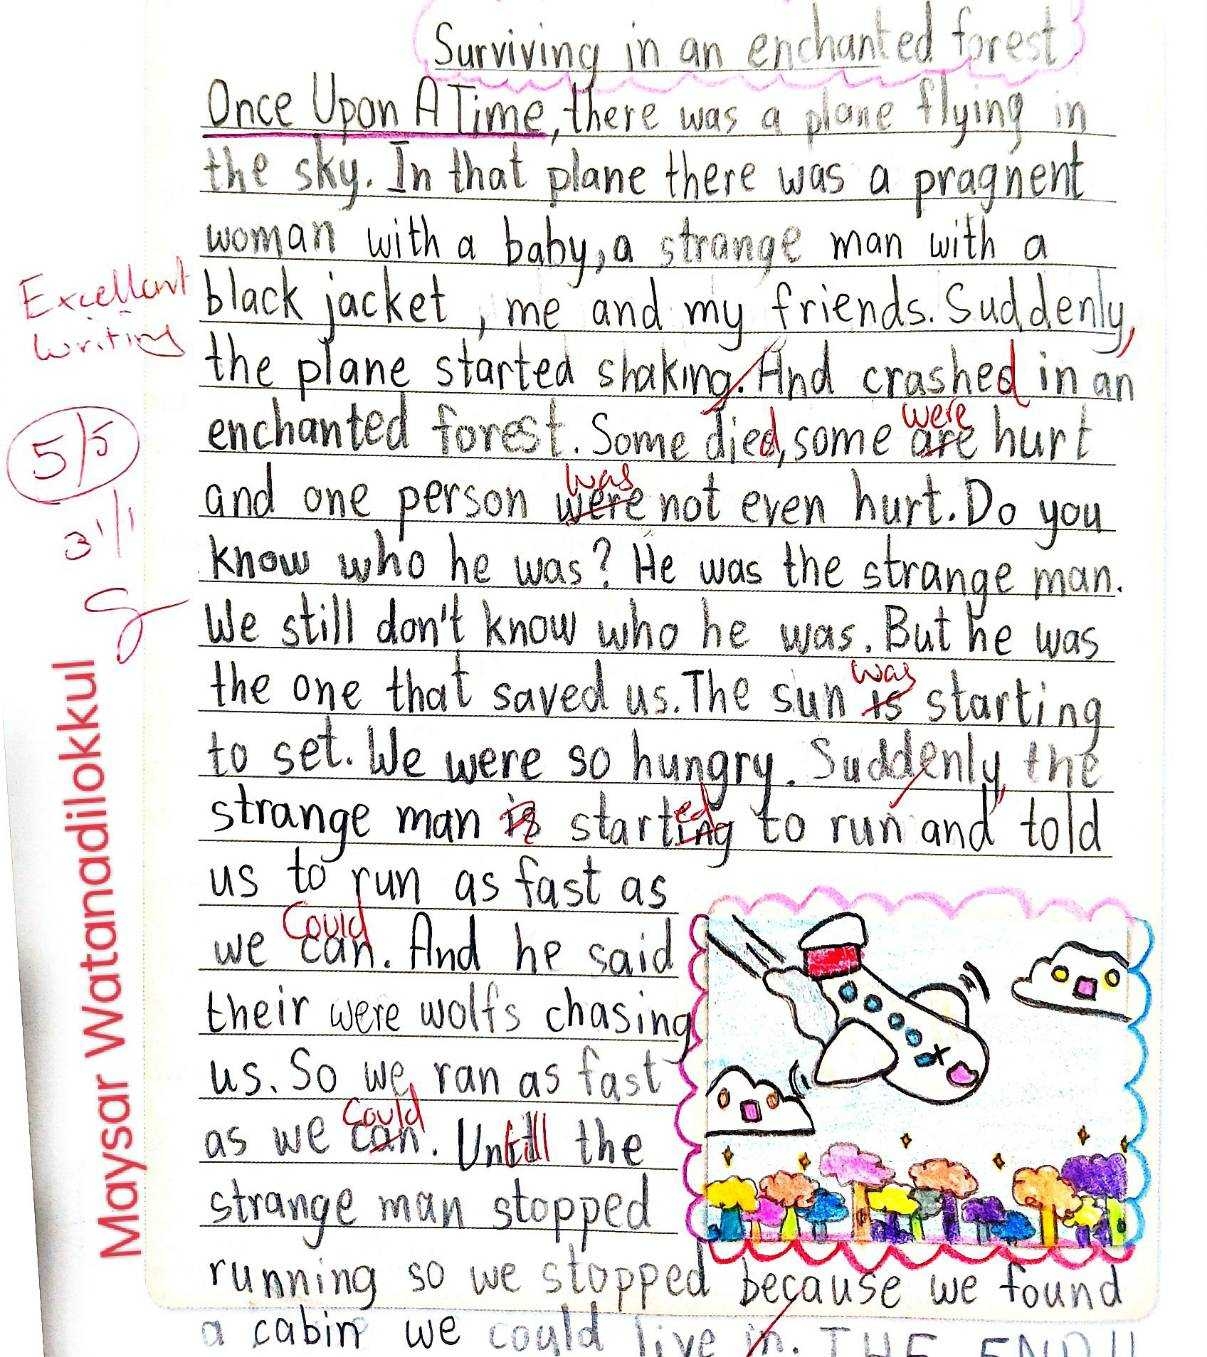 Surviving in an enchanted forest
Once Upon A Time, there was a plane flying in
the sky. In that plane there was a pragnent
woman with a baby, a strange man with a
black jacket, me and my friends. Suddenly,
the plane started shaking. And crashed in an
were
enchanted forest. Some died, some are hurt
was
and one person were not even hurt. Do you
know who he was? He was the strange man.
We still don't know who he was. But he was
was
the one that saved us. The sun is starting
to set. We were so hungry. Suddenly, the
ed
strange man is starting to run and told
us to run as fast as
Could
we can. And he said
their were wolfs chasing
us. So we ran as fast
Could
as we can. Untill the
strange man stopped
running so we stopped because we found
a cabin we could live in. THE END!!
Excellent
writing
5/5
31/1
Maysar Watanadilokkul